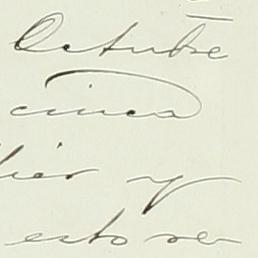 Octubre
cinco
y
esto se